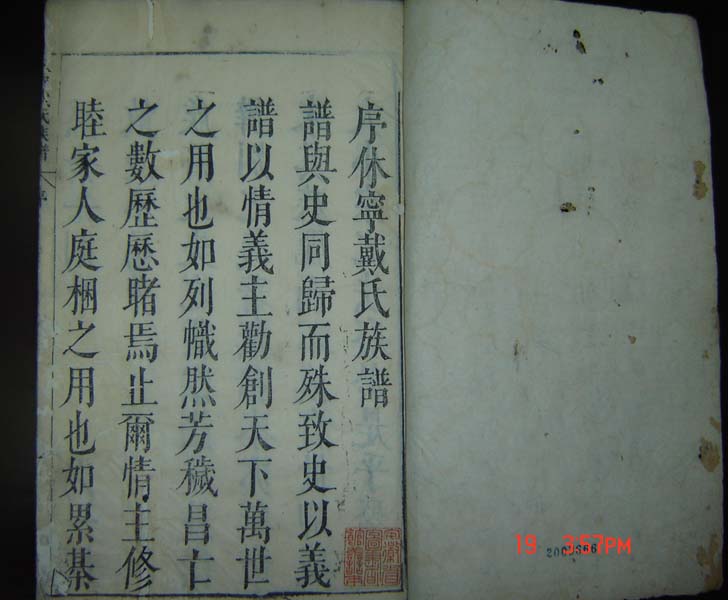 序休寧戴氏族譜
譜與史同歸而殊致史以義
譜以情義主勸創天下萬世
之用也如列幟然芳穢昌亡
之數歷歷睹焉止爾情主修
睦家人庭梱之用也如累棊
19 3:57PM